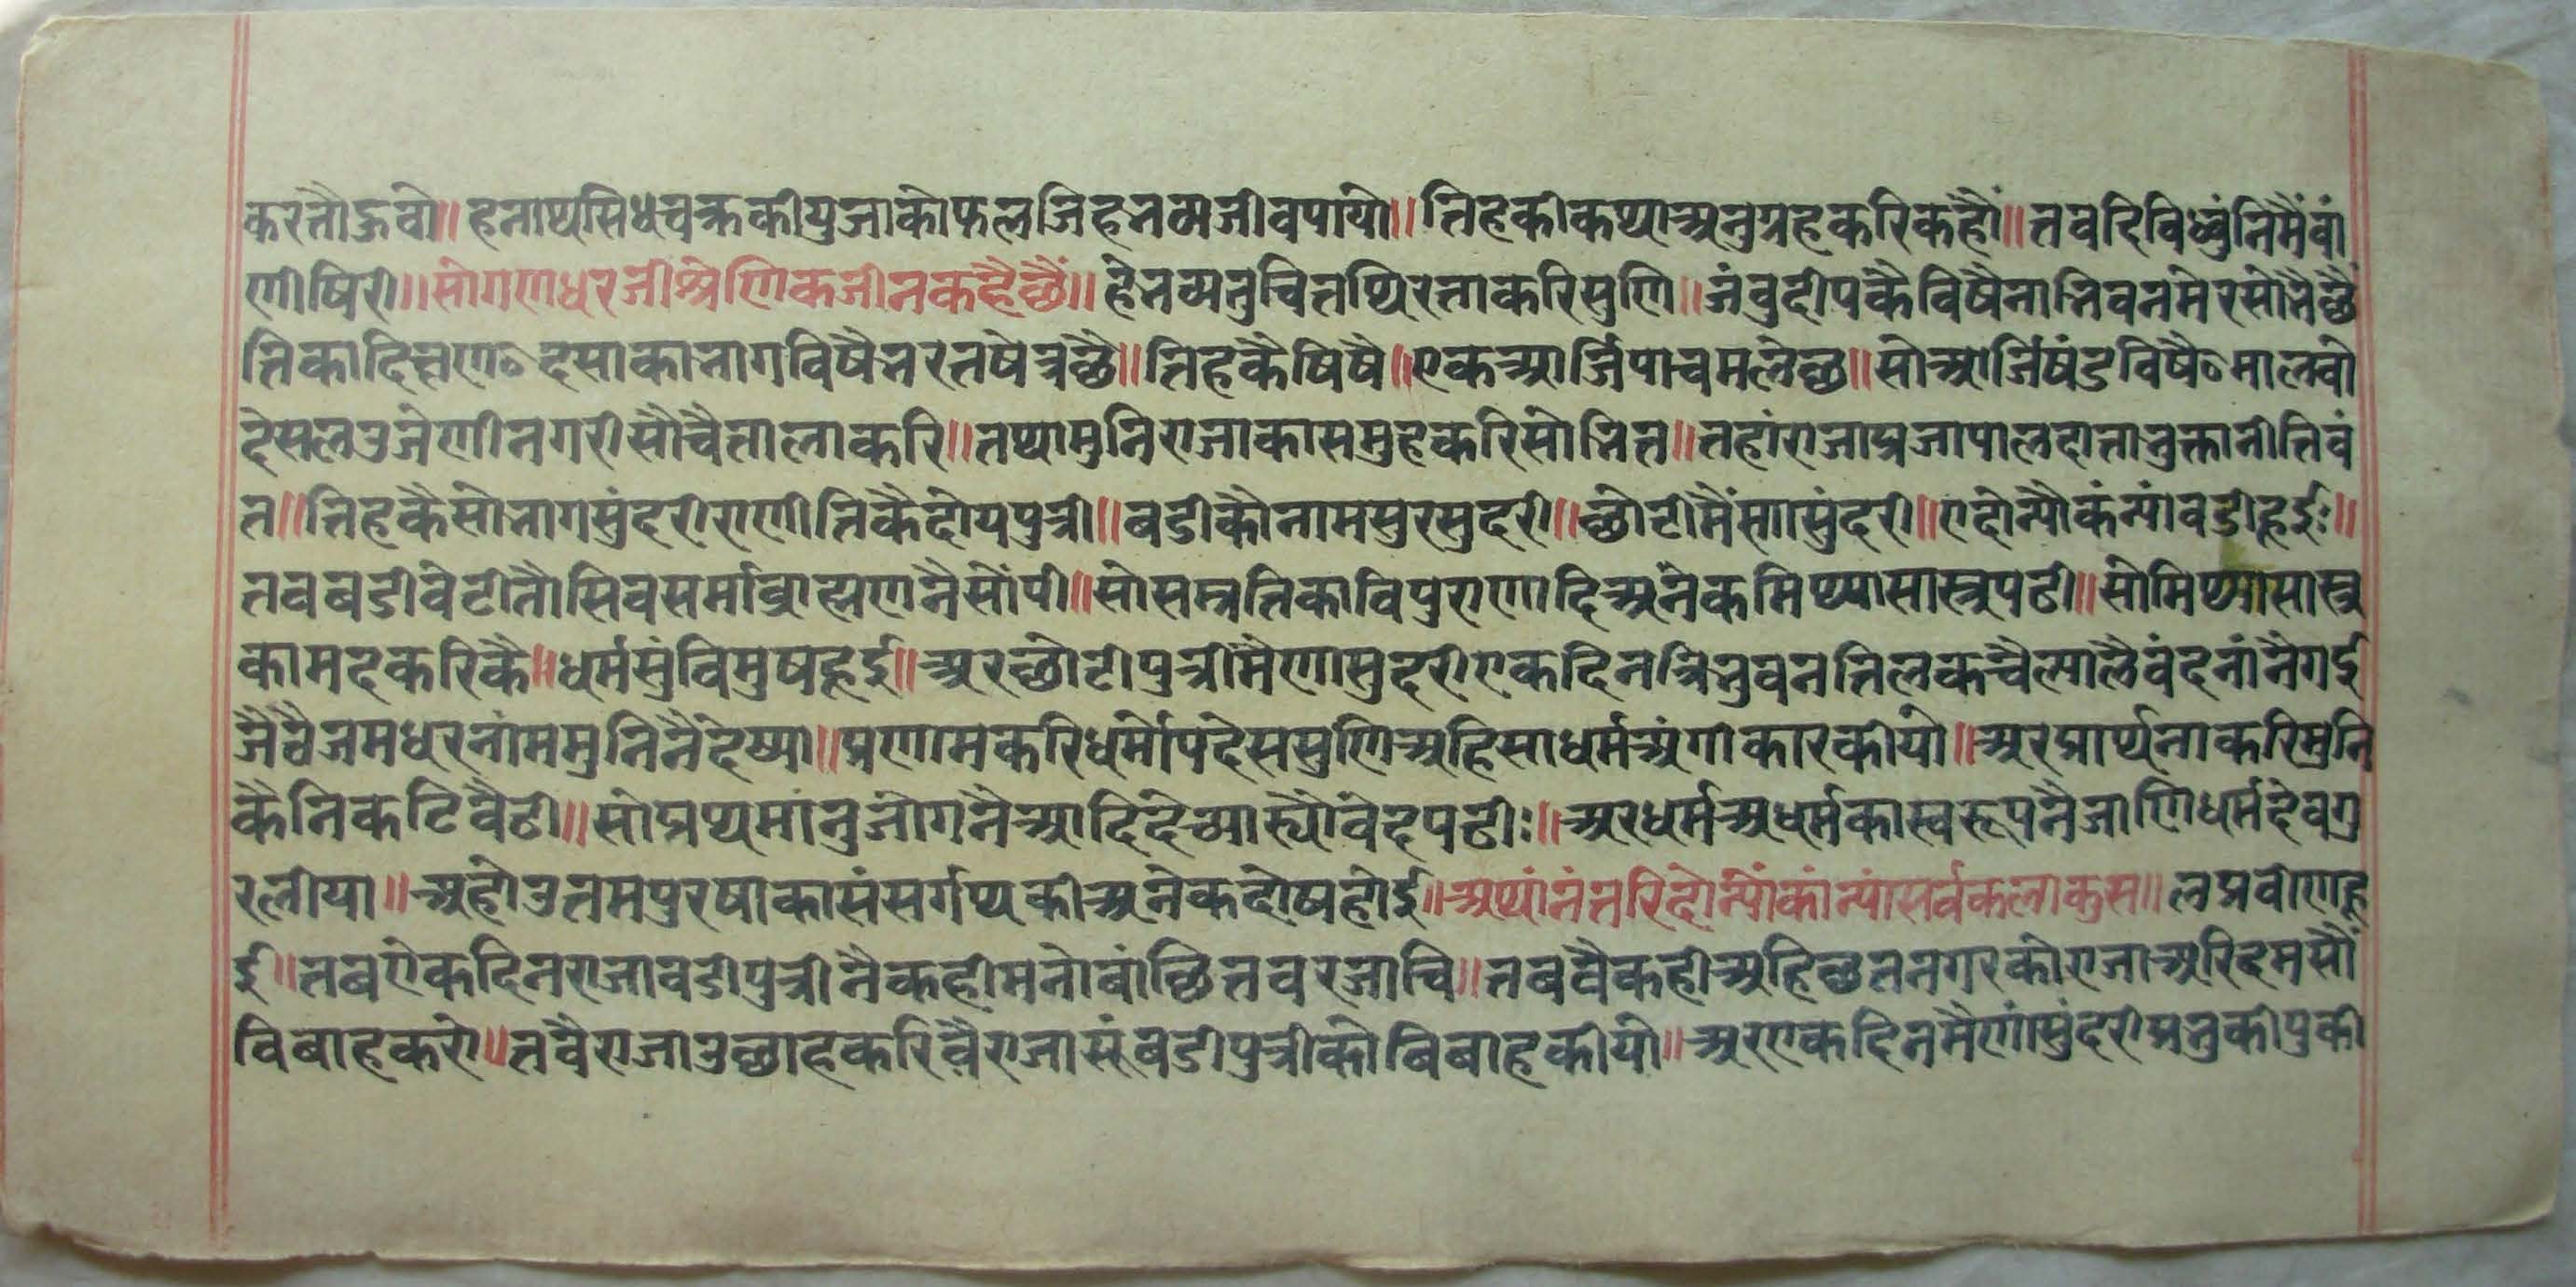 करतौऊवो॥ हनाथसिधचक्रकीपुजाकोफलजिहनव्यजीवपायो॥ तिहकीकथाअनुग्रहकरिकहौं॥ तवदिविध्वुंनिमैंवां
णीषिरी॥ सोगणधरजीश्रेणिकजीनकहैछैं॥ हेनव्यनुचितथिरताकरिसुणि॥ जंवुदीपकैविषैनानिवनमेरसोनैछै
तिकादिछण॰दसाकानागविषैनरतषेत्रछै॥ तिहकैषिषै॥ एकआर्जिपाचमलेछ॥ सोआर्जिषंडविषै॰मालवो
देसलउजेणीनगरीसौचैतालाकरि॥ तथामुनिराजाकासमुहकरिसोनित॥ तहांराजाप्रजापालदातानुक्तानीतिवं
त॥ तिहकैसोनागसुंदरीराणीतिकैदोयपुत्री॥ बडीकौनामसुरसुदरी॥ छोटीमैंणासुंदरी॥ एदोन्यौकंन्यांवडीहूई:॥
तवबडीवेटीतौसिवसर्माव्राह्मणनैसोंपी॥ सोसम्रतिकाविपुराणादिअनेकमिथ्यासास्त्रपढी॥ सोमिथ्यासास्त्र
कामदकरिकै॥ धर्मसुंविमुषहूई॥ अरछोटीपुत्रीमैणासुदरीएकदिनत्रिनुवनतिलकचैत्यालैवंदनांनैगई
जैठैजमधरनांममुनिनैदेष्या॥ प्रणामकरिधर्मोपदेससुणिअहिसाधर्मअंगीकारकीयो॥ अरप्रार्थनाकरिमुनि
कैनिकटिवैठी॥ सोप्रथमांनुजोगनैआदिदेच्यारयौवेदपढी:॥ अरधर्मअधर्मकास्वरूपनैजाणिधर्मदेवगु
रलीया॥ अहोउतमपुरषाकासंसर्गथकीअनेकदोषहोई॥ अथांनंतरिदोन्योंकांन्यांसर्वकलाकुस॥ लप्रवीणहू
ई॥ तबएकदिनराजावडीपुत्रीनैकहीमनोबांछितवरजाचि॥ तबवैकहीअहिछतनगरकोराजाअरिदमसौं
विबाहकरो॥ तवैराजाउछाहकरिवैराजासूंबडीपुत्रीकोबिबाहकीयो॥ अरएकदिनमैणांसुंदरीप्रनुकीपुकी